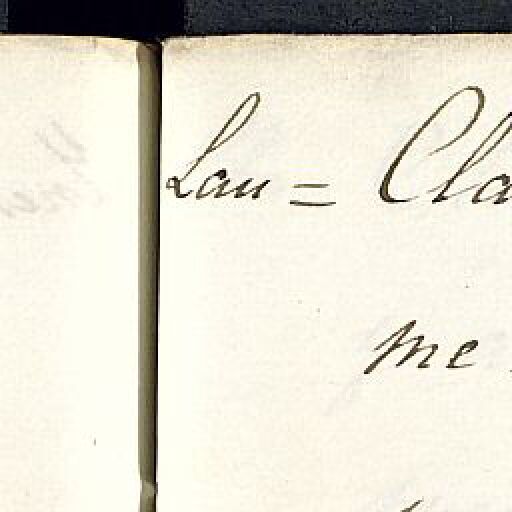 Lau = Cla
me